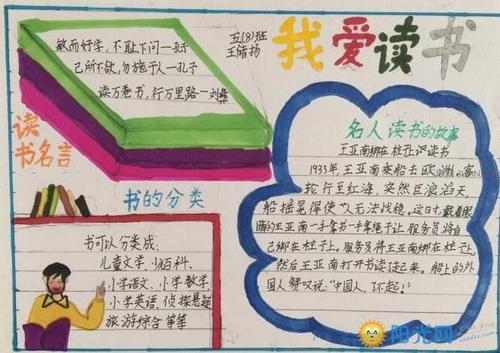 五(8)班
王倩扬
我爱读书
敏而好学，不耻下问一孔子
己所不欲，勿施于人一孔子
读万卷书，行万里路一刘彝
读
书名言
书的分类
书可以分类成：
儿童文学、少儿百科、
小学语文、小学数学
小学英语、侦探悬疑
旅游综合 等等
名人读书的故事
王亚南绑在柱子上读书
1933年,王亚南乘船去欧洲。客
轮行至红海，突然巨浪滔天，
船摇晃得使人无法战稳。这日,戴着眼
睛的王亚南一手拿书一手 让服务员将自
己绑在柱子上。服务员将王亚南绑在柱子上,
然后王亚南打开书读起来。船上的外
国人赞叹说:"中国人,了不起!"
阳光网